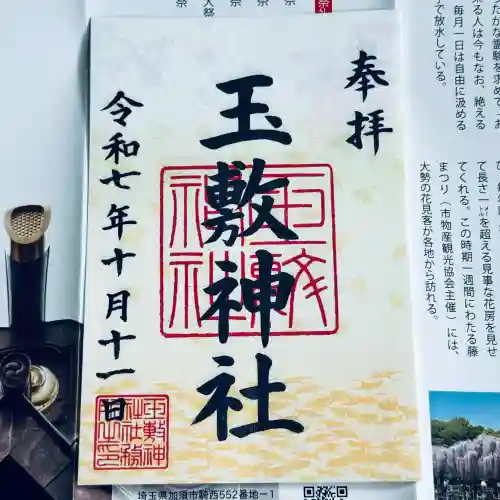 奉拝
玉敷神社
令和七年十月十一日
玉敷神社
玉敷神社社務所之印
たかな霊験を求めて、お
来る人は今もなお、絶える
毎月一日は自由に汲める
で放水している。
て長さ一㍍を超える見事な花房を見せ
てくれる。この時期一週間にわたる藤
まつり（市物産観光協会主催）には、
大勢の花見客が各地から訪れる。
埼玉県加須市騎西552番地－1